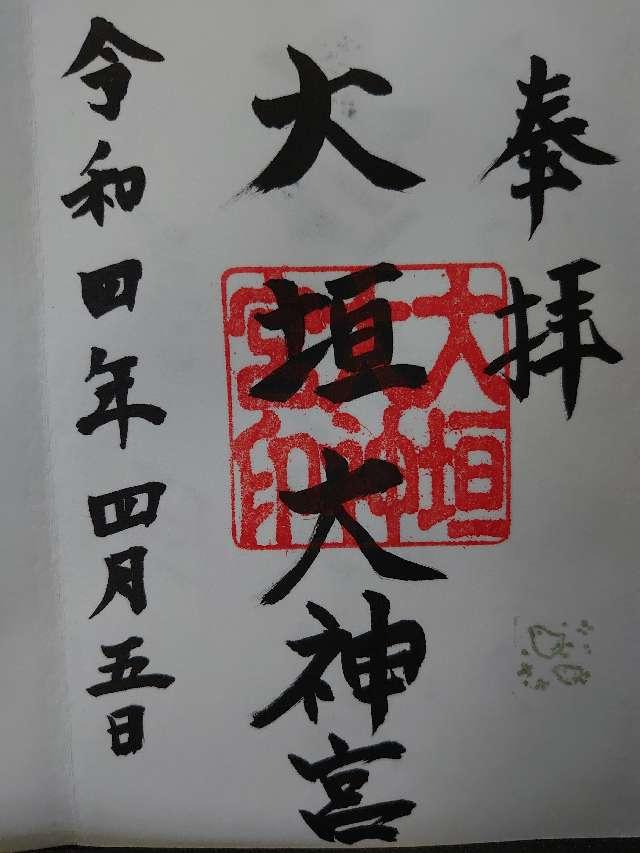 奉拝
大垣大神宮
大垣大神宮印
令和四年四月五日